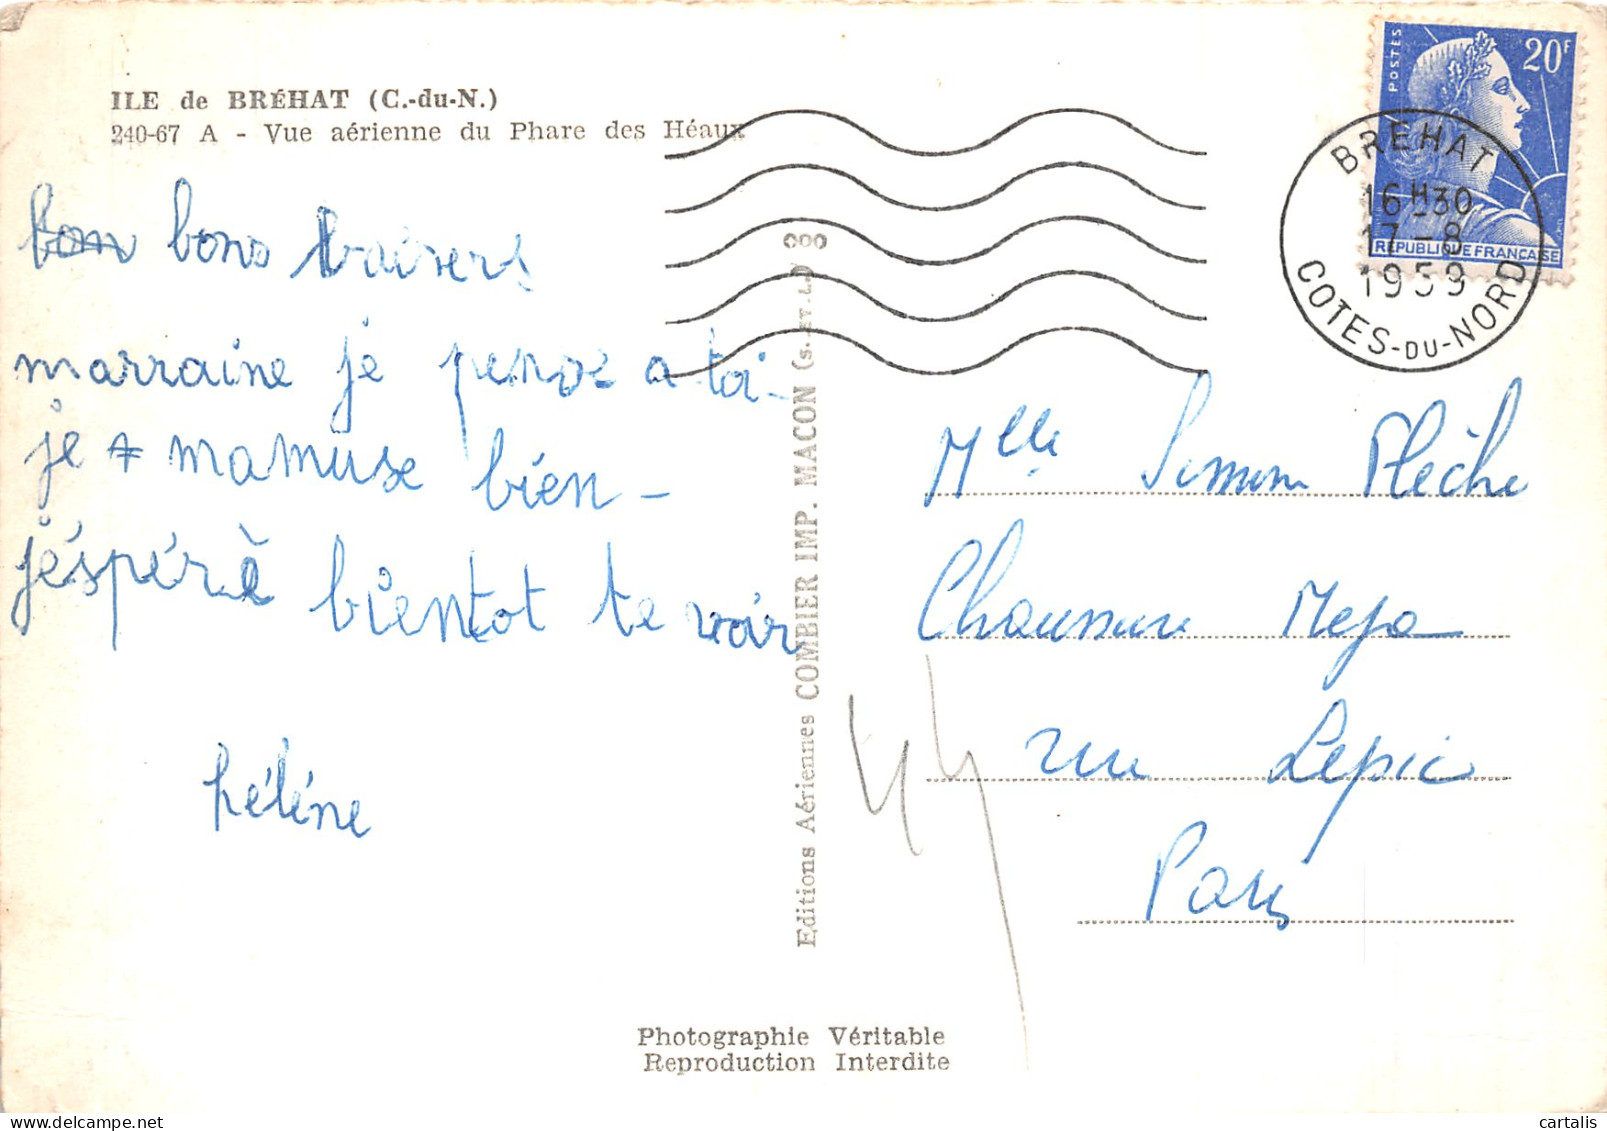 ILE de BRÉHAT (C.-du-N.)
240-67 A - Vue aérienne du Phare des Héaux
bons baisers
marraine je pense a toi-
je mamuse bien -
j'éspére bientot te voir
héléne
Editions Aériennes COMBIER IMP. MACON (S.-ET-L.)
Photographie Véritable
Reproduction Interdite
POSTES
20F
REPUBLIQUE FRANÇAISE
BREHAT
16H30
17-8
1959
COTES-DU-NORD
Mlle Flèche
Chaussure
rue Lepic
Paris
cartalis